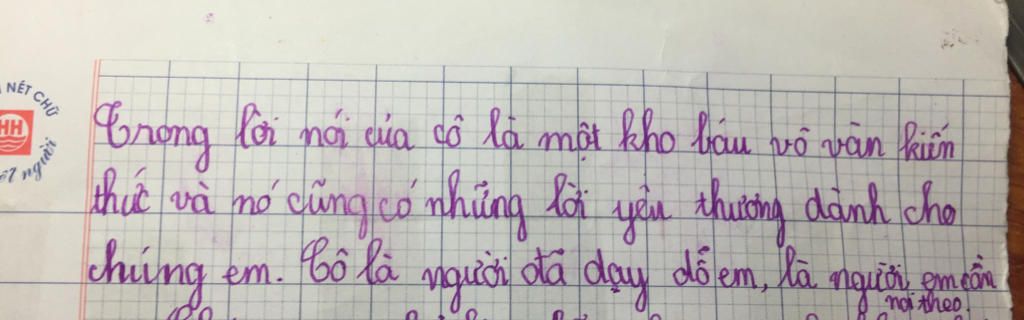 NÉT CHỮ
HH
người
Trong lời nói của cô là một kho báu vô vàn kiến
thức và nó cũng có những lời yêu thương dành cho
chúng em. Cô là người đã dạy dỗ em, là người em cần
noi theo.